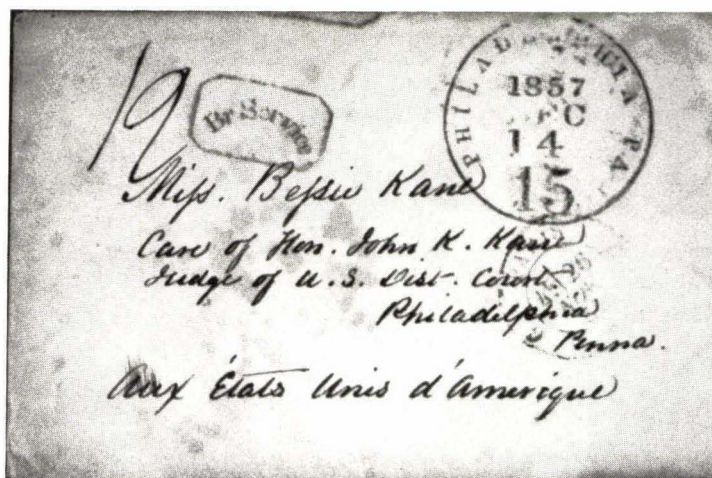 PHILADELPHIA PA
1857
EC
14
15
12
Br Service
Miss. Bessie Kane
Care of Hon. John K. Kane
Judge of U.S. Dist. Court
Philadelphia
Penna.
Aux États Unis d'Amerique